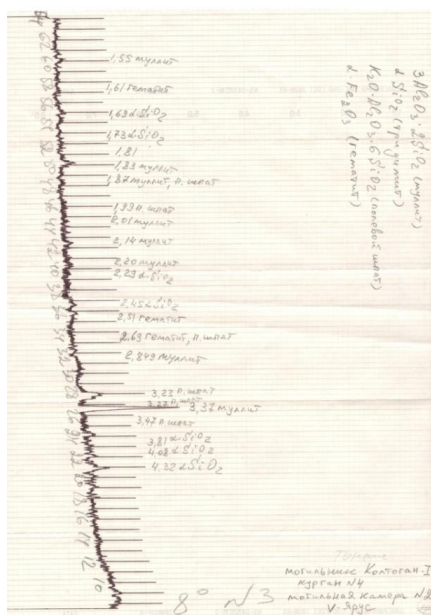 1,55 муллит
1,61 гематит
1,69 α-SiO₂
1,73 α-SiO₂
1,81
1,83 муллит
1,87 муллит, п. шпат
1,99 п. шпат
2,01 муллит
2,14 муллит
2,20 муллит
2,29 α-SiO₂
2,45 α-SiO₂
2,51 гематит
2,69 гематит, п. шпат
2,849 муллит
3,22 п. шпат
3,27 п. шпат
3,37 муллит
3,47 п. шпат
3,81 α-SiO₂
4,08 α-SiO₂
4,32 α-SiO₂
3Al₂O₃·2SiO₂ (муллит)
α SiO₂ (тридимит)
K₂O·Al₂O₃·6SiO₂ (полевой шпат)
α-Fe₂O₃ (гематит)
8° №3
могильник Колтоган-I
курган №4
могильная камера №2
V-ярус